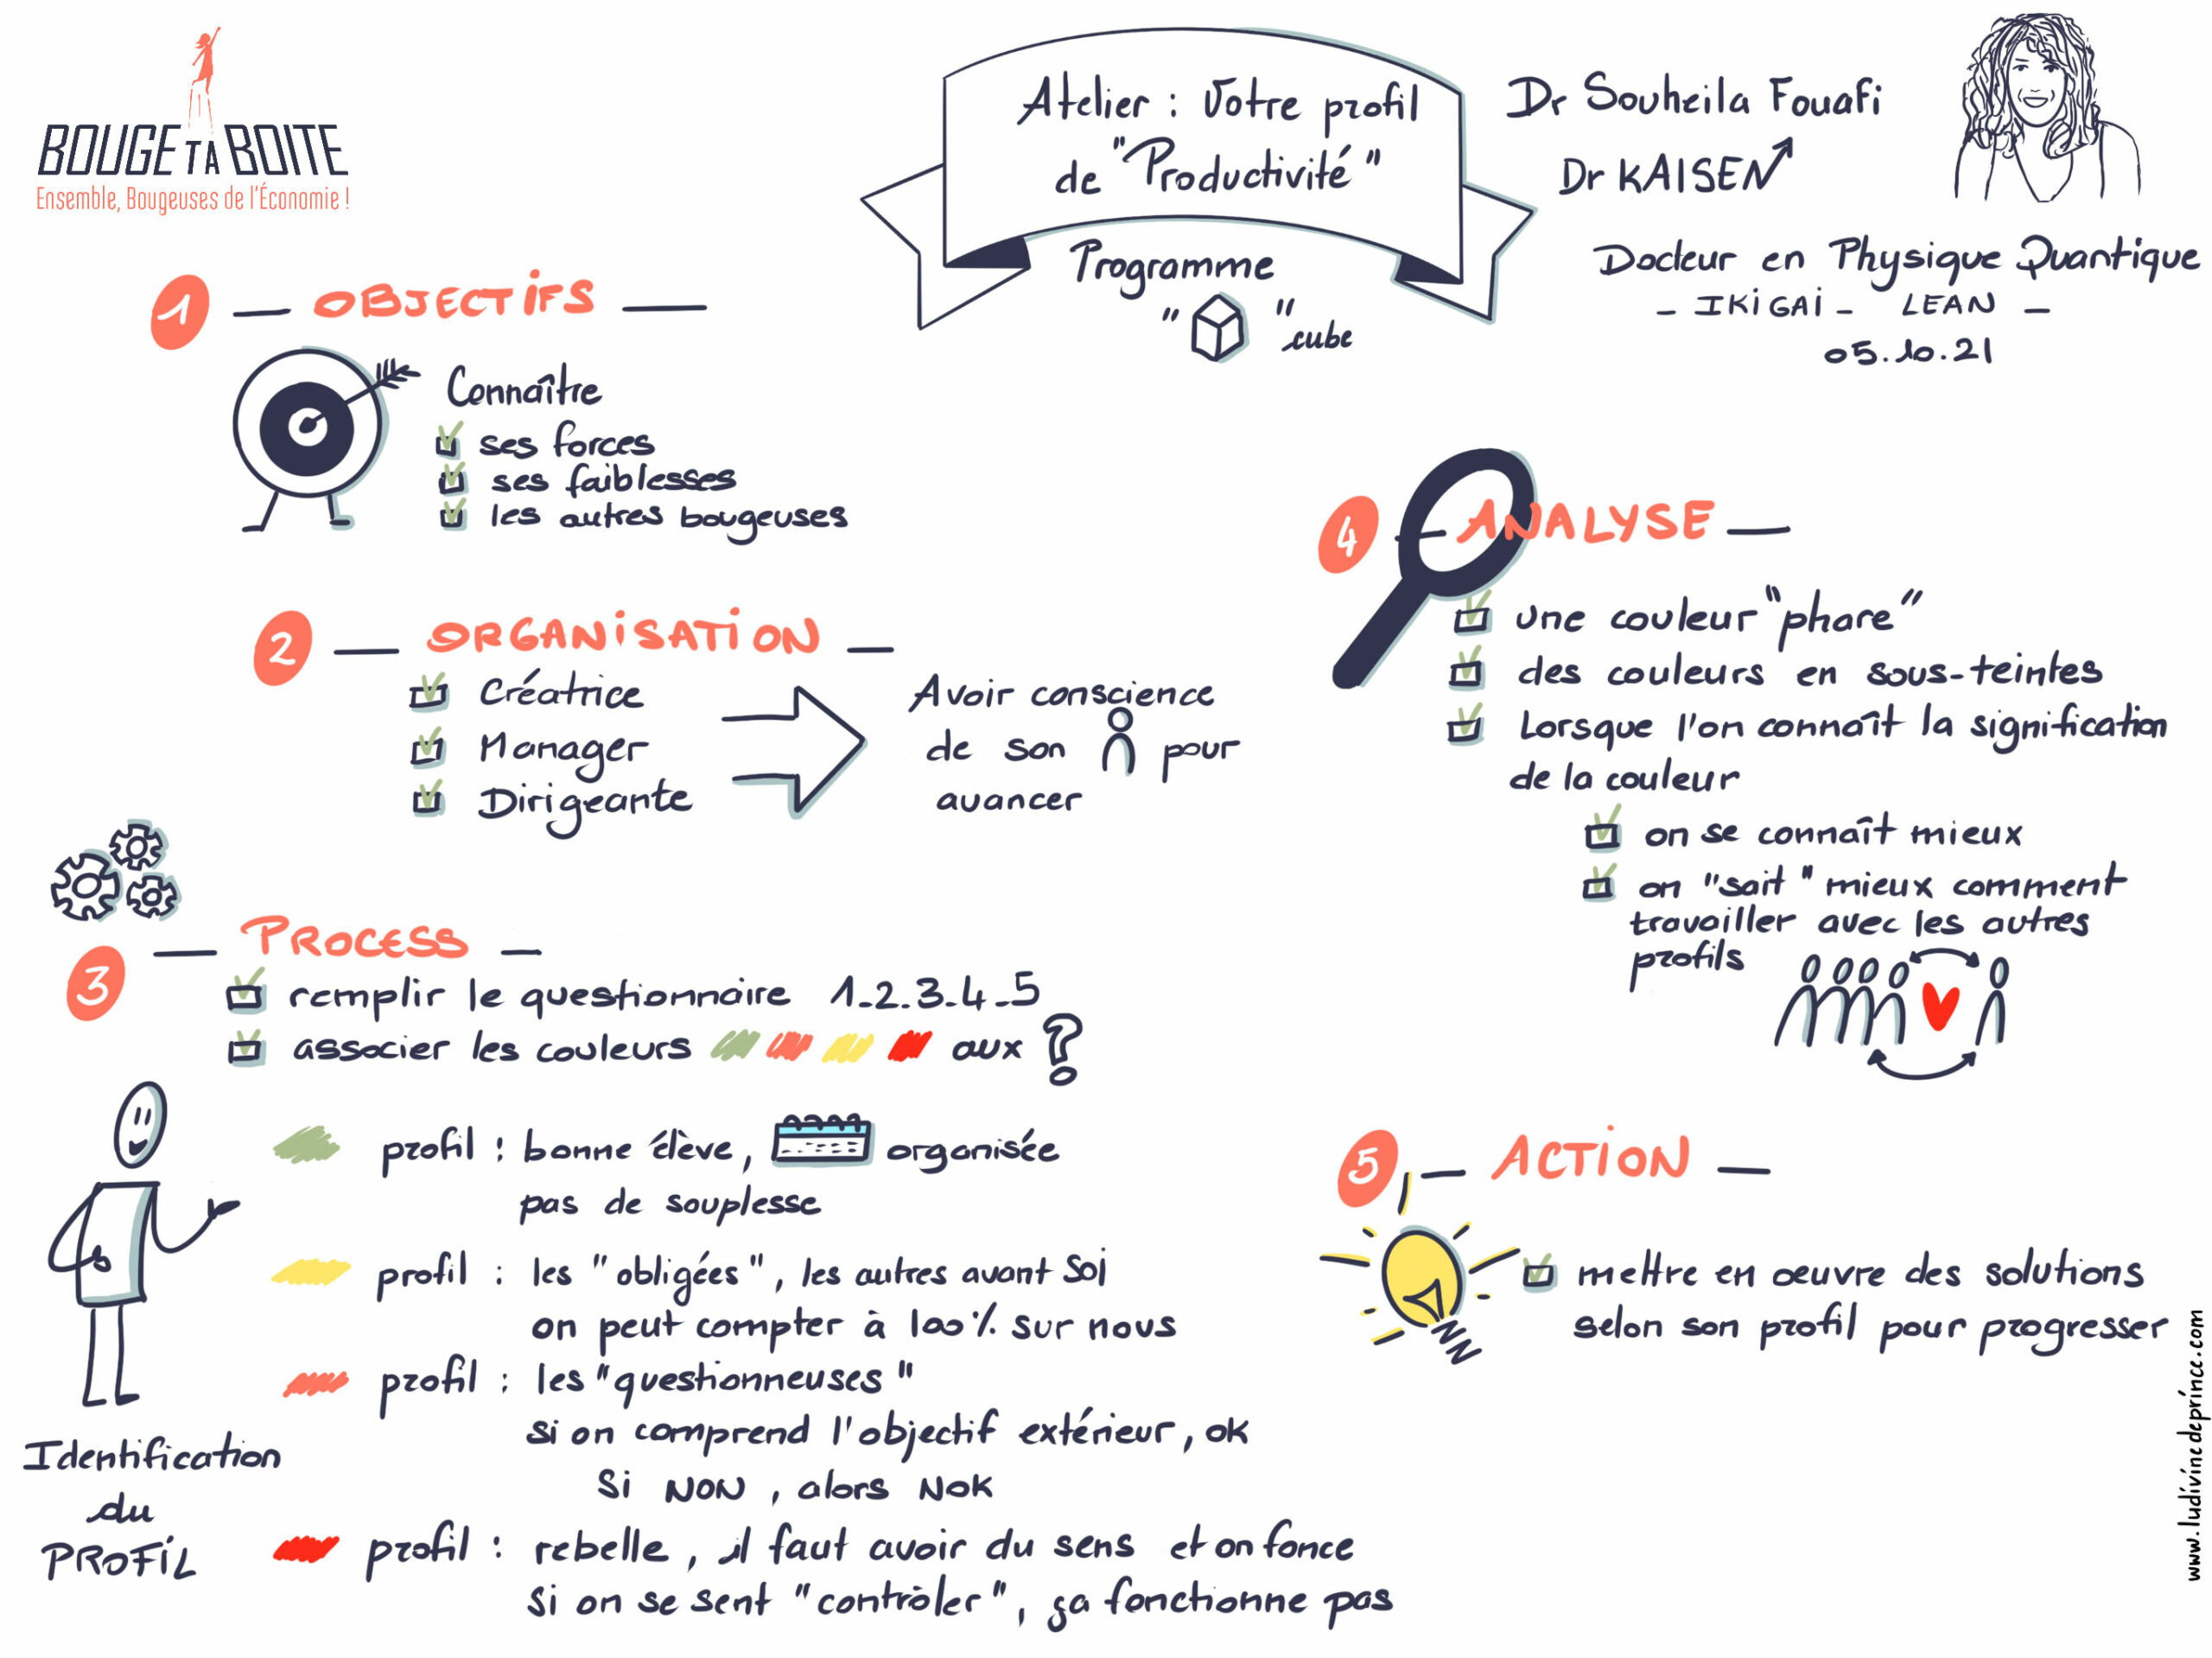 BOUGE TA BOITE
Ensemble, Bougeuses de l'Économie !
Atelier : Votre profil
de "Productivité"
Programme
" " cube
Dr Souheila Fouafi
Dr KAISEN
Docteur en Physique Quantique
- IKIGAI - LEAN -
05.10.21
1 — OBJECTIFS —
Connaître
ses forces
ses faiblesses
les autres bougeuses
2 — ORGANISATION —
Créatrice
Manager
Dirigeante
Avoir conscience
de son pour
avancer
3 — PROCESS —
remplir le questionnaire 1-2.3-4-5
associer les couleurs aux ?
Identification
du
PROFIL
profil : bonne élève, organisée
pas de souplesse
profil : les "obligées", les autres avant soi
on peut compter à 100% sur nous
profil : les "questionneuses"
si on comprend l'objectif extérieur, ok
Si NON, alors NOK
profil : rebelle, il faut avoir du sens et on fonce
Si on se sent "contrôler", ça fonctionne pas
4 — ANALYSE —
une couleur "phare"
des couleurs en sous-teintes
Lorsque l'on connaît la signification
de la couleur
on se connaît mieux
on "sait" mieux comment
travailler avec les autres
profils
5 — ACTION —
mettre en oeuvre des solutions
selon son profil pour progresser
www.ludivinedeprince.com